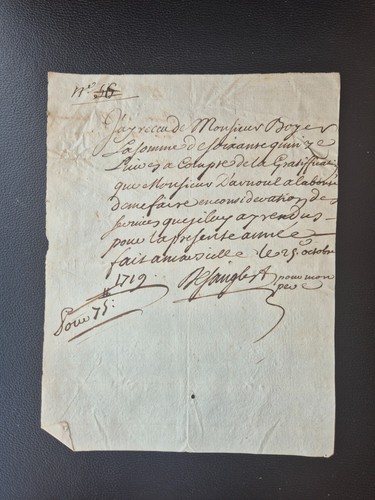 n.º 46
J'ay receu de Monsieur Boyer
La somme de soixante quinze
Livres a Compte de la Gratiffica
que Monsieur D'arnoul a la bonté
de me faire en consideration des
services que je luy ay rendus
pour la presente année
fait a marseille le 25 octobre
1719 pour mon
pere
Pour 75 :